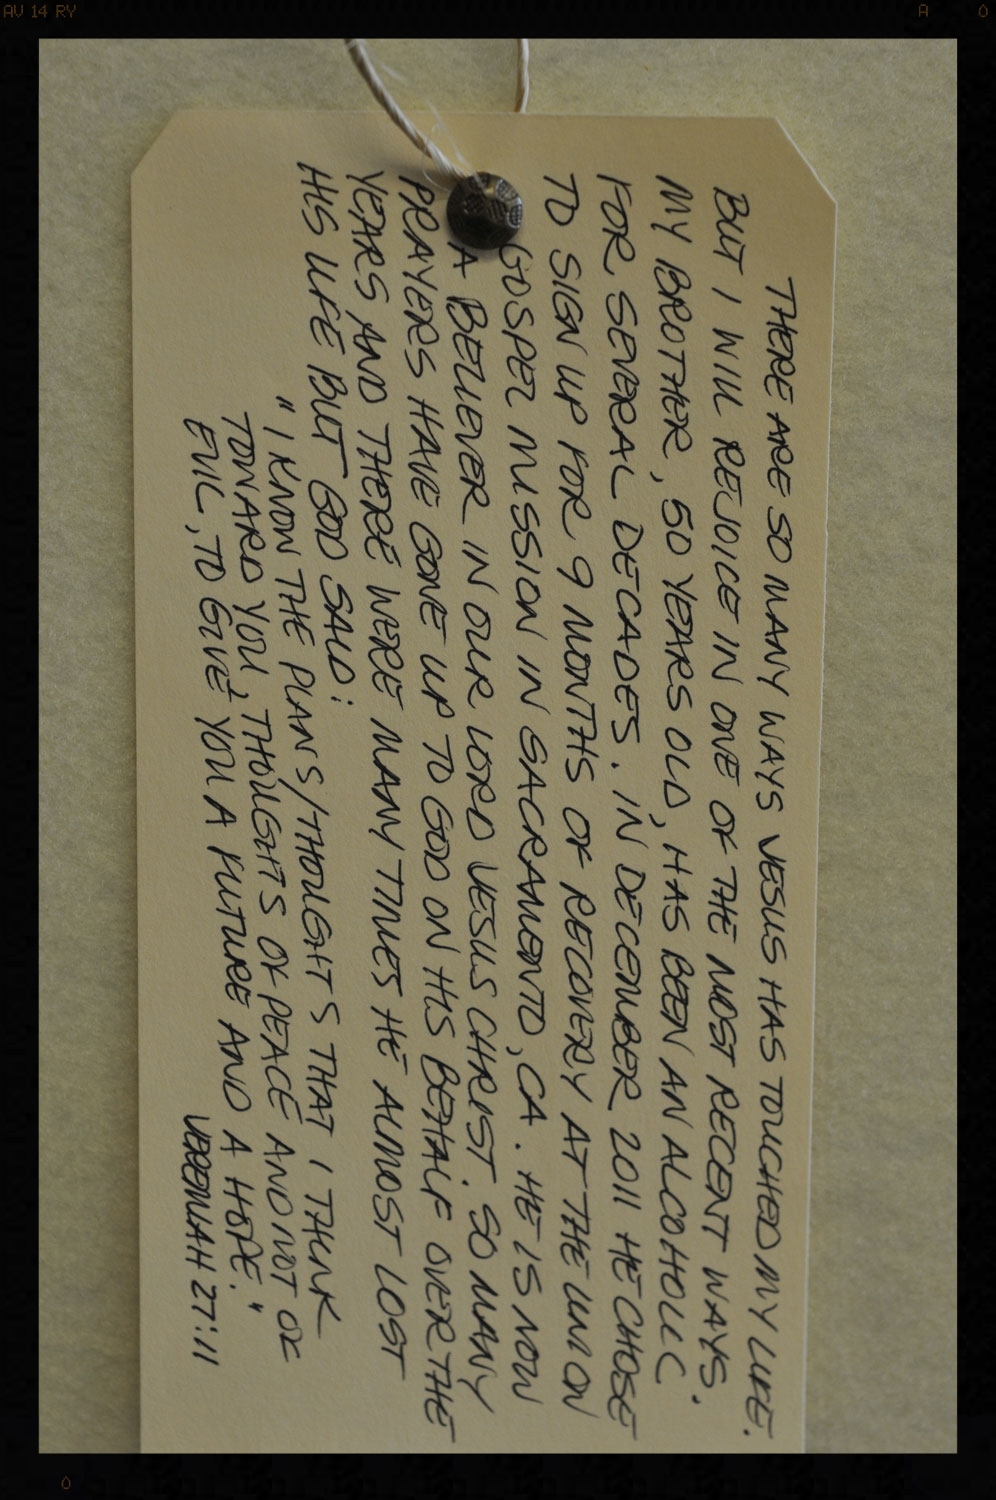 THERE ARE SO MANY WAYS JESUS HAS TOUCHED MY LIFE.
BUT I WILL REJOICE IN ONE OF THE MOST RECENT WAYS.
MY BROTHER, 50 YEARS OLD, HAS BEEN AN ALCOHOLIC
FOR SEVERAL DECADES. IN DECEMBER 2011 HE CHOSE
TO SIGN UP FOR 9 MONTHS OF RECOVERY AT THE UNION
GOSPEL MISSION IN SACRAMENTO, CA. HE IS NOW
A BELIEVER IN OUR LORD JESUS CHRIST. SO MANY
PRAYERS HAVE GONE UP TO GOD ON HIS BEHALF OVER THE
YEARS AND THERE WERE MANY TIMES HE ALMOST LOST
HIS LIFE BUT GOD SAID:
"I KNOW THE PLANS/THOUGHTS THAT I THINK
TOWARD YOU, THOUGHTS OF PEACE AND NOT OF
EVIL, TO GIVE YOU A FUTURE AND A HOPE."
JEREMIAH 27:11
AV 14 RY
A 0
0